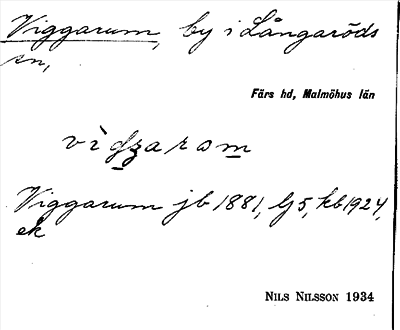 Viggarum, by i Långaröds
sn,
Färs hd, Malmöhus län
Viggarum jb 1881, lj 5, kb 1924,
ek
NILS NILSSON 1934